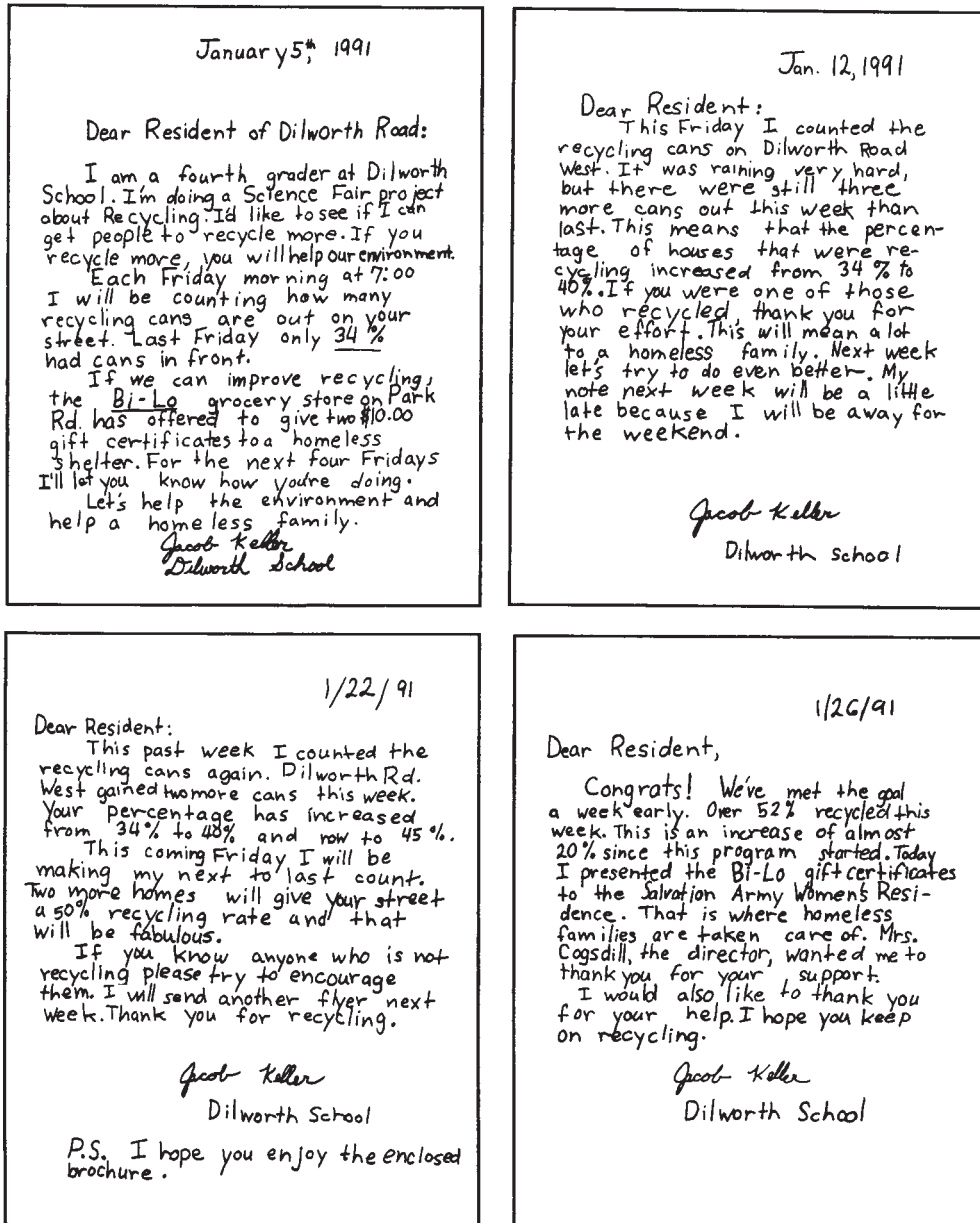 January 5th, 1991
Dear Resident of Dilworth Road:
I am a fourth grader at Dilworth
School. I'm doing a Science Fair project
about Recycling. I'd like to see if I can
get people to recycle more. If you
recycle more, you will help our environment.
Each Friday morning at 7:00
I will be counting how many
recycling cans are out on your
street. Last Friday only 34%
had cans in front.
If we can improve recycling,
the Bi-Lo grocery store on Park
Rd. has offered to give two $10.00
gift certificates to a homeless
shelter. For the next four Fridays
I'll let you know how you're doing.
Let's help the environment and
help a homeless family.
Jacob Keller
Dilworth School
Jan. 12, 1991
Dear Resident:
This Friday I counted the
recycling cans on Dilworth Road
West. It was raining very hard,
but there were still three
more cans out this week than
last. This means that the percen-
tage of houses that were re-
cycling increased from 34% to
40%. If you were one of those
who recycled, thank you for
your effort. This will mean a lot
to a homeless family. Next week
let's try to do even better. My
note next week will be a little
late because I will be away for
the weekend.
Jacob Keller
Dilworth School
1/22/91
Dear Resident:
This past week I counted the
recycling cans again. Dilworth Rd.
West gained two more cans this week.
Your percentage has increased
from 34% to 40% and now to 45%.
This coming Friday I will be
making my next to last count.
Two more homes will give your street
a 50% recycling rate and that
will be fabulous.
If you know anyone who is not
recycling please try to encourage
them. I will send another flyer next
week. Thank you for recycling.
Jacob Keller
Dilworth School
P.S. I hope you enjoy the enclosed
brochure.
1/26/91
Dear Resident,
Congrats! We've met the goal
a week early. Over 52% recycled this
week. This is an increase of almost
20% since this program started. Today
I presented the Bi-Lo gift certificates
to the Salvation Army Women's Resi-
dence. That is where homeless
families are taken care of. Mrs.
Cogsdill, the director, wanted me to
thank you for your support.
I would also like to thank you
for your help. I hope you keep
on recycling.
Jacob Keller
Dilworth School